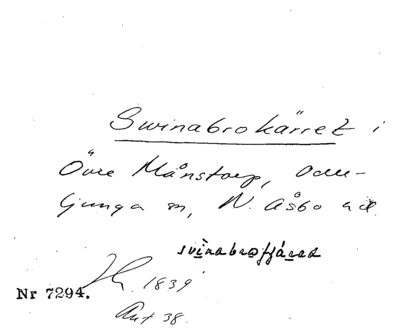 Swinabrokärret i
Övre Månstorp, Oder-
ljunga sn, N. Åsbo hd.
svinabrofjáred
1839
Nr 7294.
Ant 38.